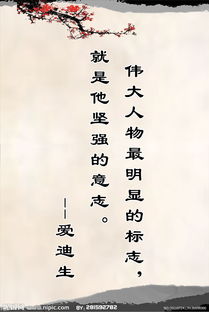 伟大人物最明显的标志，
就是他坚强的意志。
——爱迪生
昵图网 www.nipic.com
BY: 281592782